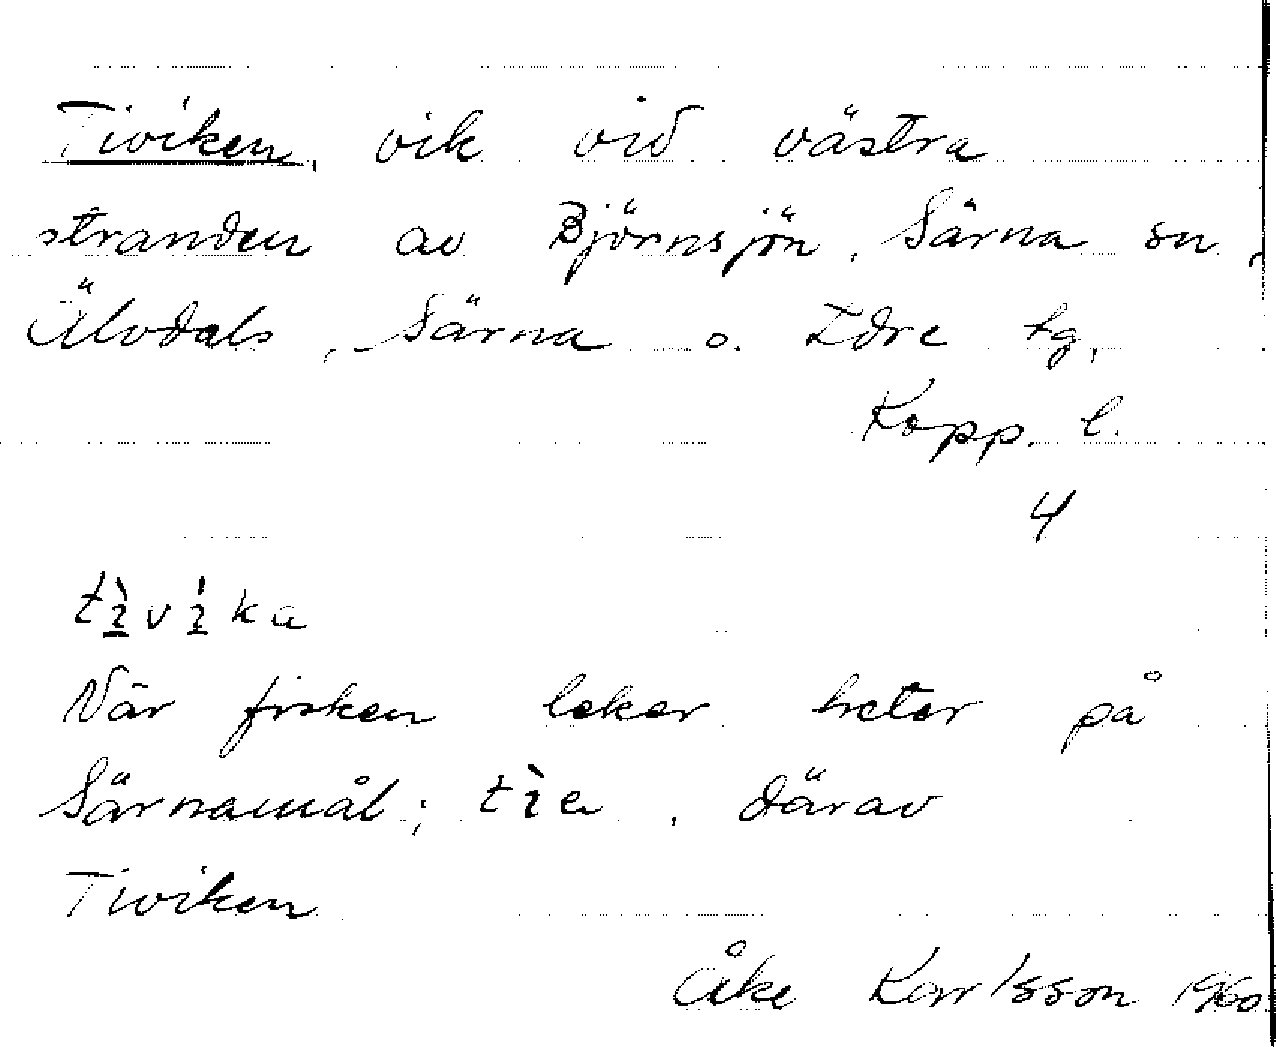 Tiviken, vik vid västra
stranden av Björnsjön, Särna sn,
Älvdals, Särna o. Idre tg,
Kopp. l.
4
När fisken leker heter på
Särnamål; därav
Tiviken
Åke Karlsson 1960